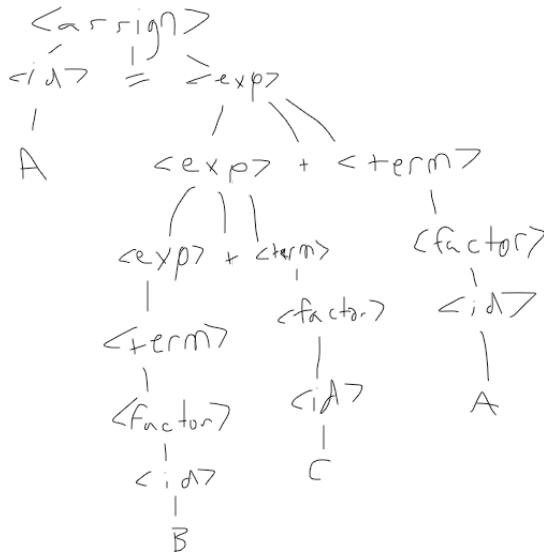 <assign>
<id> = <exp>
A <exp> + <term>
<exp> + <term> <factor>
<factor> <id>
<term>
<factor> <id> A
<id> C
B